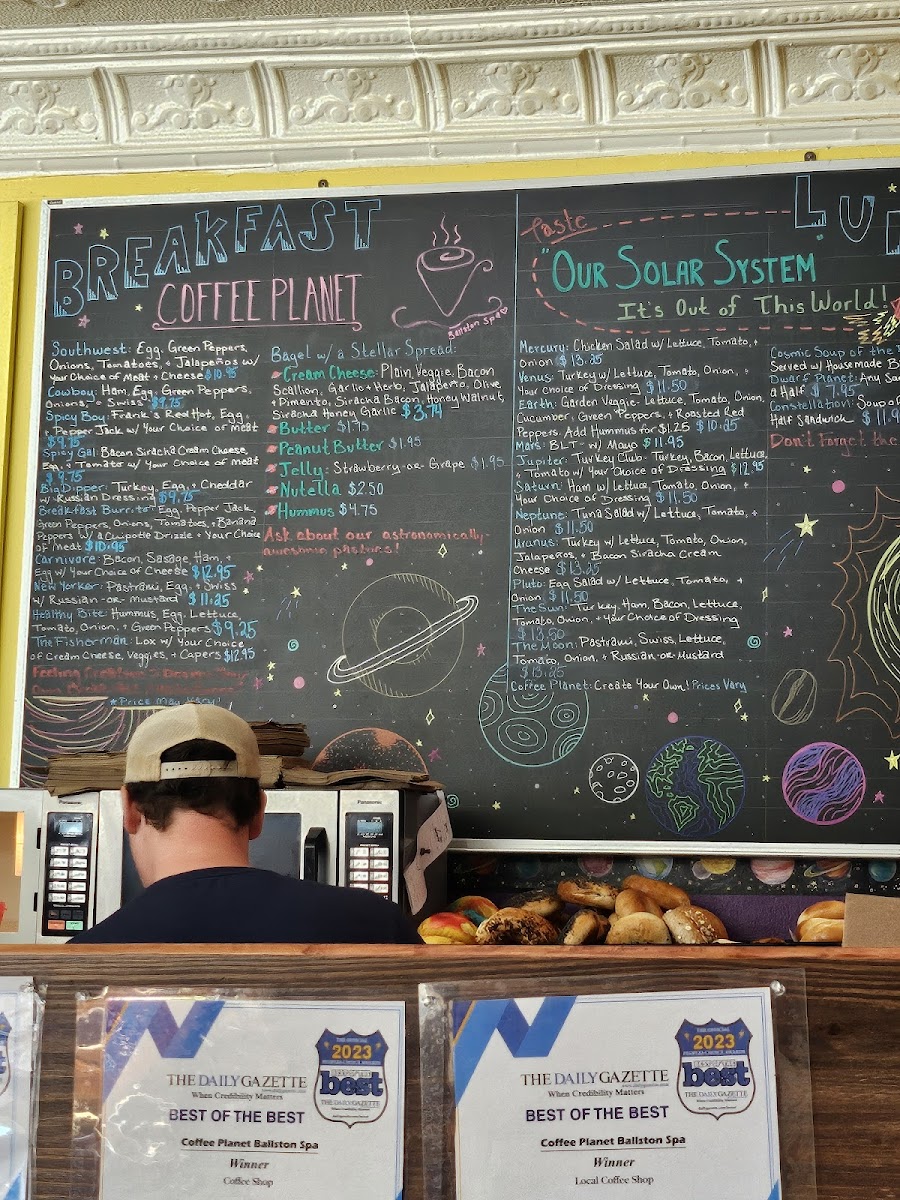 BREAKFAST
COFFEE PLANET
Ballston Spa
Southwest: Egg, Green Peppers,
Onions, Tomatoes, + Jalapeños w/
your Choice of Meat + Cheese $10.95
Cowboy: Ham, Egg, Green Peppers,
Onions, + Swiss $9.75
Spicy Boy: Frank's Red Hot, Egg,
+ Pepper Jack w/ Your Choice of Meat
$9.75
Spicy Gal: Bacon Siracha Cream Cheese,
Egg, + Tomato w/ Your Choice of Meat
$9.75
Big Dipper: Turkey, Egg, + Cheddar
w/ Russian Dressing $9.75
Breakfast Burrito: Egg, Pepper Jack,
Green Peppers, Onions, Tomatoes, + Banana
Peppers w/ a Chipotle Drizzle + Your Choice
of Meat $10.95
Carnivore: Bacon, Sasage, Ham, +
Egg w/ Your Choice of Cheese $12.95
New Yorker: Pastrami, Egg, + Swiss
w/ Russian -or- Mustard $11.25
Healthy Bite: Hummus, Egg, Lettuce,
Tomato, Onion, + Green Peppers $9.25
The Fisherman: Lox w/ Your Choice
of Cream Cheese, Veggies, + Capers $12.95
Feeling Creative?
*Price May Vary!
Bagel w/ a Stellar Spread:
Cream Cheese: Plain, Veggie, Bacon
Scallion, Garlic + Herb, Jalapeño, Olive
+ Pimento, Siracha Bacon, Honey Walnut,
Siracha Honey Garlic $3.74
Butter $1.75
Peanut Butter $1.95
Jelly: Strawberry -or- Grape $1.95
Nutella $2.50
Hummus $4.75
Ask about our astronomically-
awesome pastries!
LU
Taste
"OUR SOLAR SYSTEM"
It's Out of This World!
Mercury: Chicken Salad w/ Lettuce, Tomato, +
Onion $13.25
Venus: Turkey w/ Lettuce, Tomato, Onion, +
Your Choice of Dressing $11.50
Earth: Garden Veggie- Lettuce, Tomato, Onion,
Cucumber, Green Peppers, + Roasted Red
Peppers. Add Hummus for $1.25 $10.25
Mars: BLT- w/ Mayo $11.95
Jupiter: Turkey Club- Turkey, Bacon, Lettuce,
+ Tomato w/ Your Choice of Dressing $12.95
Saturn: Ham w/ Lettuce, Tomato, Onion, +
Your Choice of Dressing $11.50
Neptune: Tuna Salad w/ Lettuce, Tomato, +
Onion $11.50
Uranus: Turkey w/ Lettuce, Tomato, Onion,
Jalapeños, + Bacon Siracha Cream
Cheese $13.25
Pluto: Egg Salad w/ Lettuce, Tomato, +
Onion $11.50
The Sun: Turkey, Ham, Bacon, Lettuce,
Tomato, Onion, + Your Choice of Dressing
$13.50
The Moon: Pastrami, Swiss, Lettuce,
Tomato, Onion, + Russian -or- Mustard
$13.25
Coffee Planet: Create Your Own! Prices Vary
Cosmic Soup of the
Served w/ Housemade B
Dwarf Planet: Any Sa
a Half $7.95
Constellation: Soup o
Half Sandwich $11.9
Don't Forget the
Panasonic
Panasonic
THE DAILY GAZETTE
When Credibility Matters
BEST OF THE BEST
Coffee Planet Ballston Spa
Winner
Coffee Shop
THE OFFICIAL
2023
PEOPLE'S CHOICE AWARDS
BEST OF THE
best
THE DAILY GAZETTE
THE DAILY GAZETTE
When Credibility Matters
BEST OF THE BEST
Coffee Planet Ballston Spa
Winner
Local Coffee Shop
THE OFFICIAL
2023
PEOPLE'S CHOICE AWARDS
BEST OF THE
best
THE DAILY GAZETTE